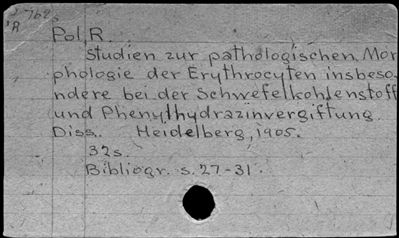 762
R
Pol, R.
Studien zur pathologischen Mor
phologie der Erythrocyten insbeso-
ndere bei der Schwefelkohlenstoff
und Phenylhydrazinvergiftung.
Diss. Heidelberg, 1905.
32s.
Bibliogr. s. 27-31.